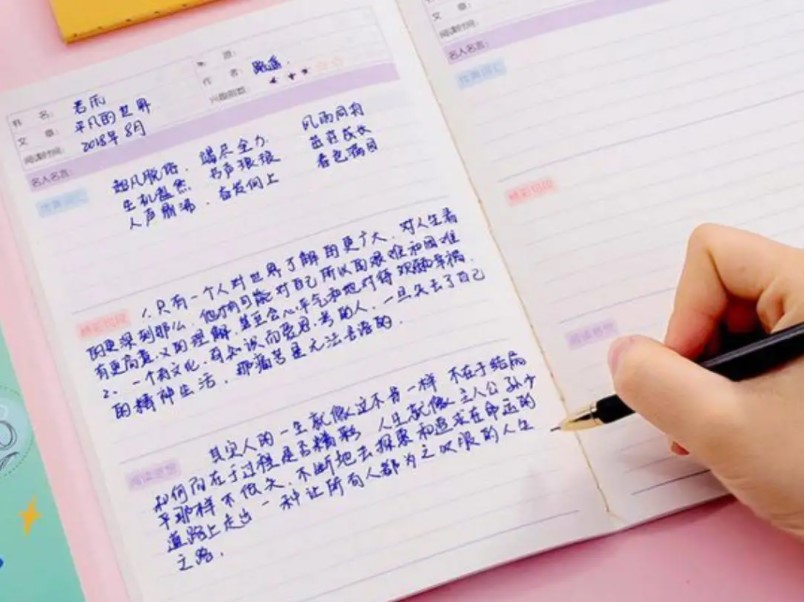 姓 名: 君雨
来 源:
文 章: 平凡的世界
作 者: 路遥.
阅读时间: 2018年8月
兴趣指数: ★★★☆☆
名人名言:
优美词汇
超凡脱俗 竭尽全力 风雨同舟
生机盎然 书声琅琅 茁壮成长
人声鼎沸. 奋发向上 春色满园
精彩句段
1. 只有一个人对世界了解的更广大. 对人生看
的更深刻那么. 他才有可能对自己所以的艰难和困难
有更高意义的理解. 甚至会心平气和地对待欢顾幸福.
2. 一个有文化、有知识而爱思考的人. 一旦失去了自己
的精神生活. 那痛苦是无法言语的.
阅读感想
其实人的一生就像这本书一样 不在于结局
如何而在于过程是否精彩 人生就像主人公孙少
平那样不低头. 不断地去探索和追求在命运的
道路上走出一种让所有人都为之叹服的人生
之路.
文 章:
阅读时间:
名人名言:
优美词汇
精彩句段
阅读感想